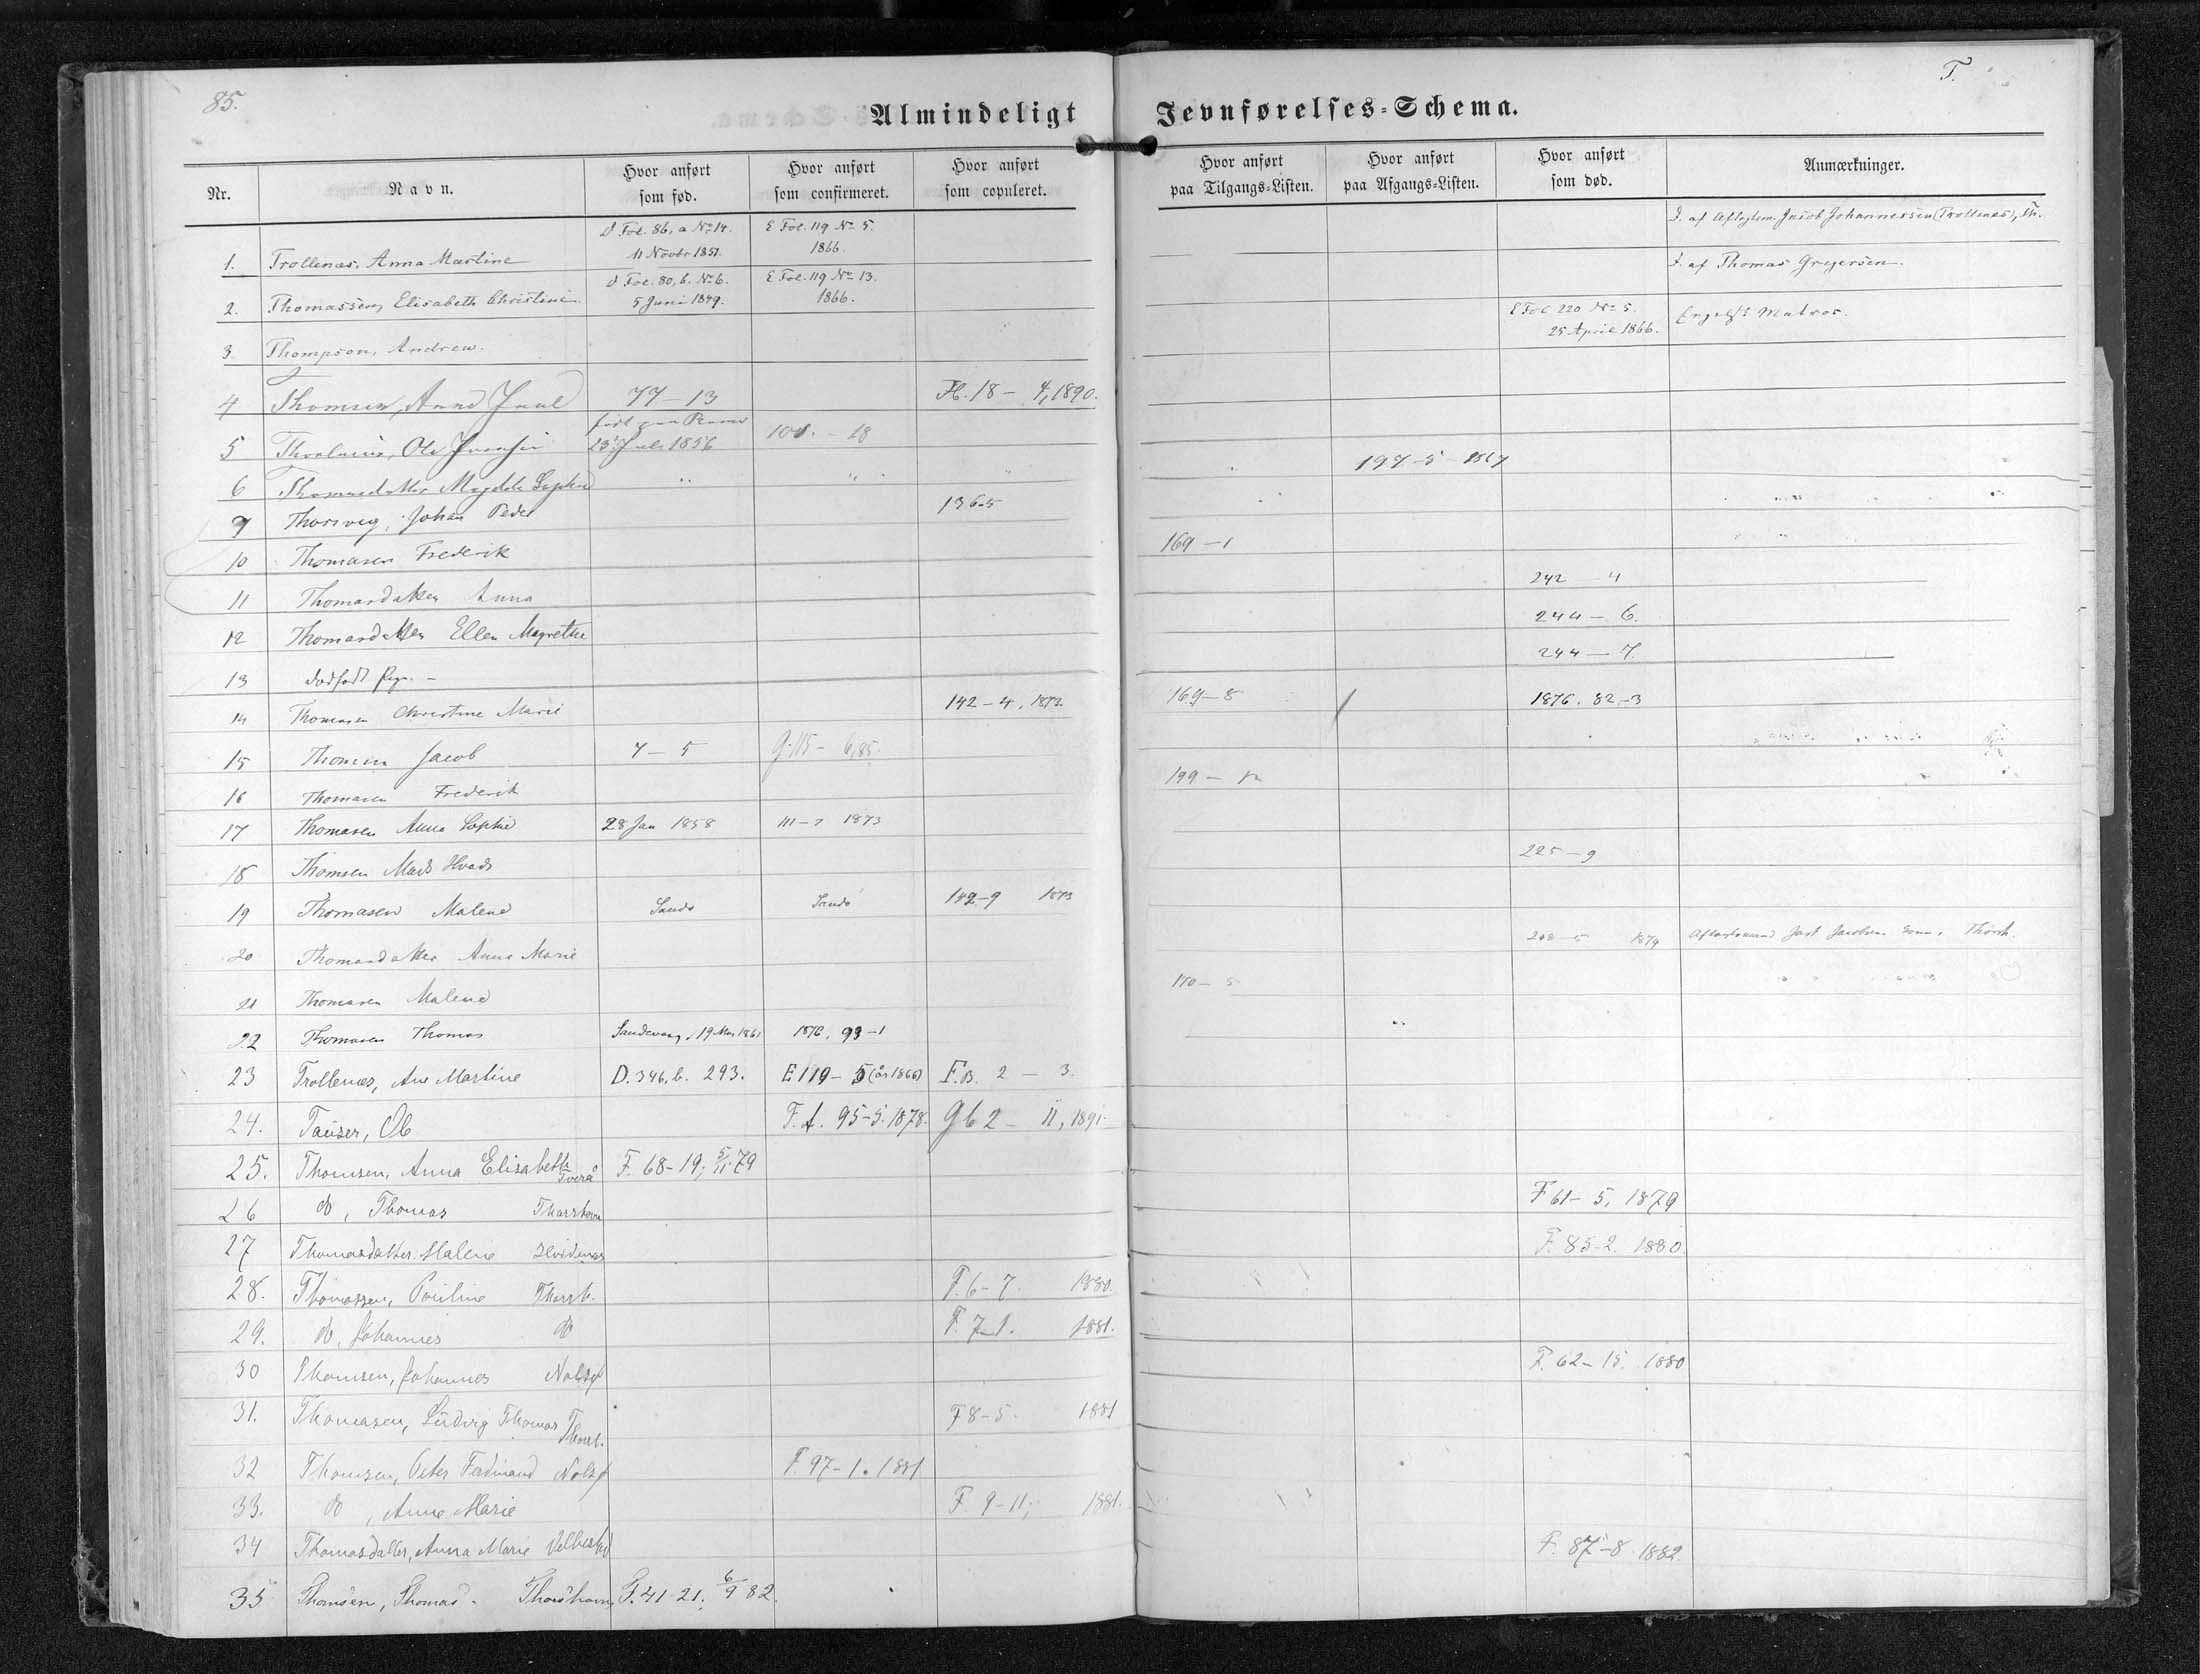 85.
T.
Almindeligt Jevnførelses=Schema.
Nr. Navn. Hvor anført som fød. Hvor anført som confirmeret. Hvor anført som copuleret. Hvor anført paa Tilgangs=Listen. Hvor anført paa Afgangs=Listen. Hvor anført som død. Anmærkninger.
1. Trollenæs, Anna Martine D Fol. 86, a No 14. 11 Novbr 1851. E Fol. 119 No 5. 1866. D. af Jacob Johannessen (Trollenæs), Th.
2. Thomassen, Elisabeth Christine D Fol. 80, b. No 6. 5 Juni 1849. E Fol. 119 No 13. 1866. D. af Thomas Gregersen.
3. Thompson, Andrew. E Fol 220 No 5. 25 April 1866. Engelsk Matros.
4 Thomsen, Juul 77-13 Fb. 18 - 4, 1890.
5 Ole 1856 101. - 18
6 Thomasdatter Sophie 197-5-1867
9 Thorsveg, Johan Peder 136-5
10 Thomasen Frederik 169-1
11 Thomasdatter Anna 242-4
12 Thomasdatter Ellen Magrethe 244-6.
13 dødfødt 244-7.
14 Thomasen Christine Marie 142-4, 1873. 169-8 1876. 82-3
15 Thomsen Jacob 7-5 G. 115 - 6, 85.
16 Thomasen Frederik 199 -
17 Thomasen Anna Sophie 28 Jan 1858 111-7 1873
18 Thomsen Mads 225-9
19 Thomasen Malene Sandø Sandø 142-9 1873
20 Thomasdatter Anne Marie 1879 Jacobsen
21 Thomasen Malene 170-5
22 Thomasen Thomas Sandevaag, 19 Mar 1861 1876. 93-1
23 Trollenæs, Ane Martine D. 346, b. 293. E 119-5 (år 1866) F.B. 2 - 3.
24. Tauser, Ob F. A. 95-5. 1878. Gb 2 - 11, 1891.
25. Thomsen, Anna Elisabeth Tverå F. 68-19; 5/11 79
26 do, Thomas Thorshavn F 61-5, 1879
27 Thomasdatter Malene Hvidenæs F. 85-2. 1880.
28. Thomassen, Pauline Thorsh. F. 6-7. 1880.
29. do, Johannes do F. 7-1. 1881.
30 Thomsen, Johannes Nolsø F. 62-15. 1880
31. Thomasen, Ludvig Thomas Thorsh. F 8-5. 1881
32 Thomsen, Peter Ferdinand Nolsø F. 97-1. 1881
33. do, Anne Marie F. 9-11; 1881.
34 Thomasdatter, Anna Marie Velbestad F. 87-8. 1882.
35 Thomsen, Thomas. Thorshavn F. 41-21; 6/9 82.